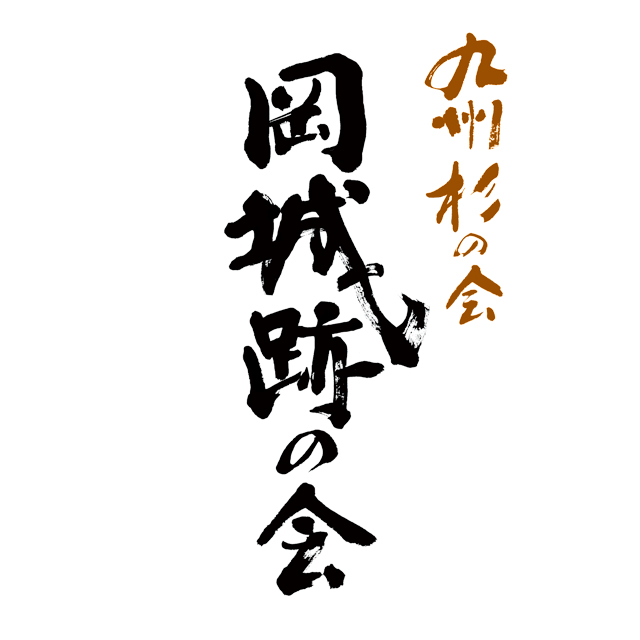 九州杉の会
岡城跡の会